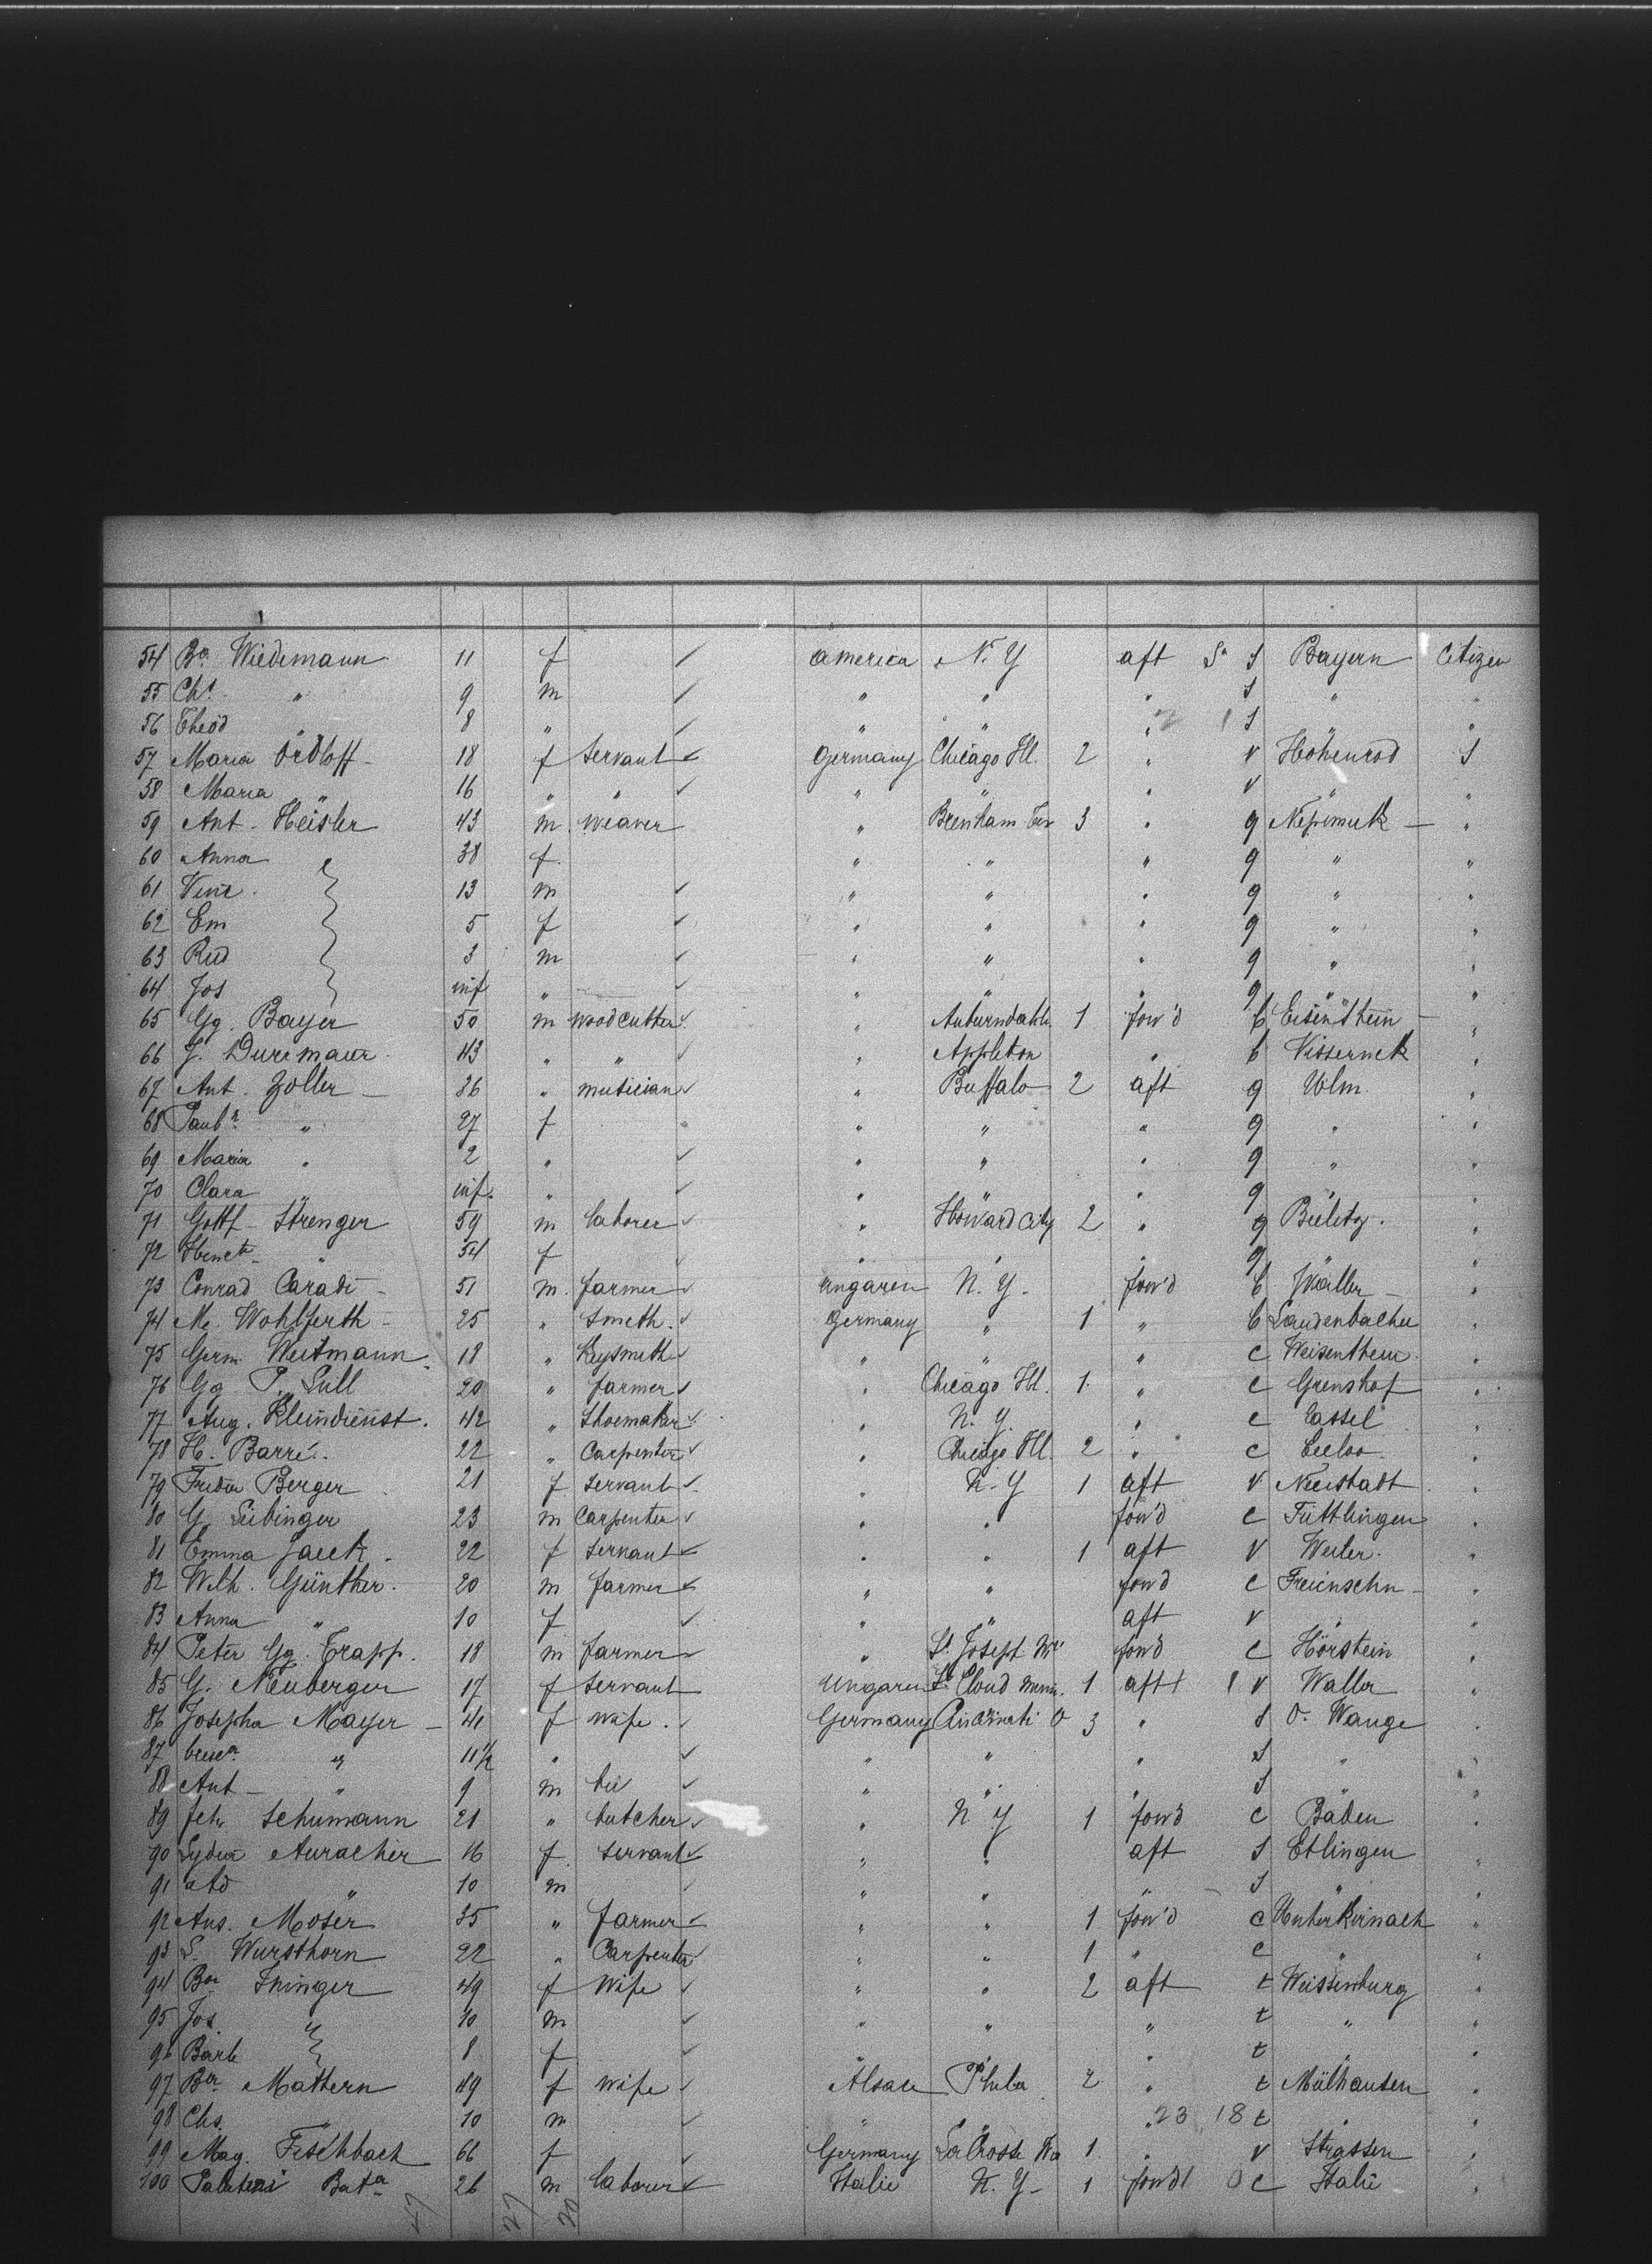 54 Ba. Wiedemann 11 f ✓ America N. Y aft Sa S Bayern Citizen
55 Chs. " 9 m ✓ " " " S " "
56 Theod " 8 " ✓ " " " 2 1 S " "
57 Maria Ordloff - 18 f servant ✓ Germany Chicago Ill. 2 " v Hohenrod S
58 Maria " 16 " " ✓ " " " v " "
59 Ant. Heisler 43 m weaver " Brenham Tex 3 " g Nepomuk - "
60 Anna 38 f. " " " g " "
61 Venz. 13 m ✓ " " " g " "
62 Em 5 f ✓ " " " g " "
63 Rud 3 m ✓ " " " g " "
64 Jos inf " ✓ " " " g " "
65 Gg. Bayer 50 m woodcutter ✓ " 1 fow'd b Eisenstein - "
66 J. 43 " " ✓ " Appleton " b "
67 Ant. Zoller - 26 " musician ✓ " Buffalo 2 aft g Ulm. "
68 " 27 f " " " " g " "
69 Maria " 2 " ✓ " " " g " "
70 Clara " inf. " ✓ " " " g " "
71 Gottf - Strenger 59 m laborer ✓ " Howard City 2 " g Bielitz. "
72 " 54 f ✓ " " " g " "
73 Conrad Caradi - 51 m. farmer ✓ Ungaren N. Y. fow'd b "
74 M. Wohlferth - 25 " smeth. ✓ Germany " 1 " b Laudenbacher "
75 Germ Weitmann 18 " Keysmeth ✓ " " " c Weisentheim "
76 Gg P. Lull 20 " farmer ✓ " Chicago Ill. 1. " c Grenshof "
77 Aug. Kleindienst. 42 " Shoemaker ✓ " N. Y. " c Cassel "
78 H. Barré. 22 " Carpenter ✓ " Chicago Ill. 2 " c "
79 Berger 21 f. servant ✓ " N. Y 1 aft v Neustadt "
80 G Leibinger 23 m Carpenter ✓ " " fow'd c Tuttlingen "
81 Emma Jaeck. 22 f servant ✓ " " 1 aft v Weiler. "
82 Wilh. Günther. 20 m farmer ✓ " " fow'd c "
83 Anna " 10 f ✓ " " aft v " "
84 Peter Gg. Trapp. 18 m farmer ✓ " St. Joseph fow'd c Hörstein "
85 G. Neuberger 17 f servant Ungaren St. Cloud Minn. 1 aft 1 1 v Waller "
86 Josepha Mayer - 41 f wife. ✓ Germany Cincinati O 3 " S O. Wange "
87 " 11 1/2 " ✓ " " " S " "
88 Ant - " 9 m ✓ " " " S " "
89 Schumann 21 " butcher ✓ " N Y 1 fow'd c Baden "
90 Auracher 16 f. servant ✓ " " aft S Etlingen "
91 " 10 m ✓ " " " S " "
92 Ans. Moser 35 " farmer ✓ " " 1 fow'd c Unterkirnach "
93 S. Wursthorn 22 " Carpenter " " 1 " c " "
94 Ba Ininger 49 f wife ✓ " " 2 aft t Weissenburg "
95 Jos. " 10 m ✓ " " " t " "
96 Barb 8 f ✓ " " " t " "
97 Ba. Mattern 49 f wife ✓ Alsace Phila 2 " t Mülhausen "
98 Chs. " 10 m ✓ " " " 23 18 t " "
99 Mag. Fischbach 66 f ✓ Germany La Crosse 1. " v Strassen "
100 26 m laborer ✓ Italie N. Y - 1 fow'd 1 0 c Italie "
47 27 20